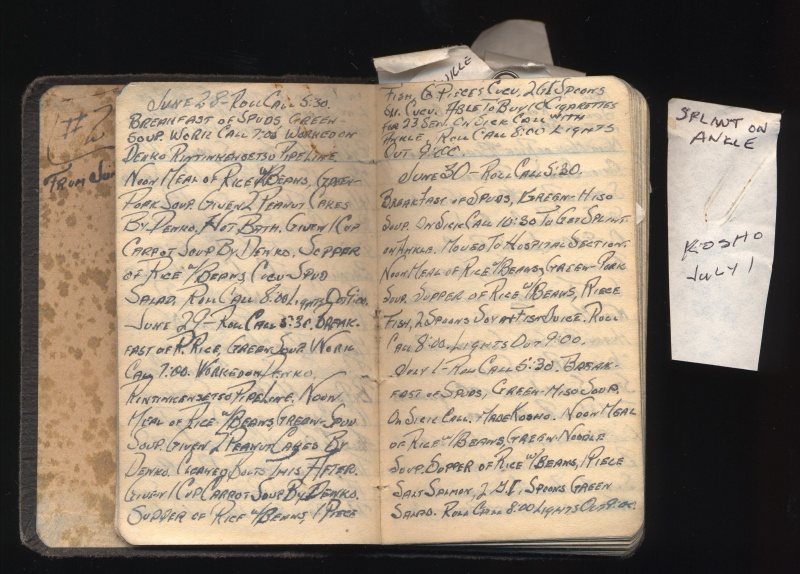 #2
From Jun
June 28 - Roll Call 5:30.
Breakfast of Spuds Green-
Soup. Work Call 7:00 Worked on
Denko Rintinkensetsu Pipeline
Noon Meal of Rice w/Beans, Green-
Pork Soup. Given 2 Peanut Cakes
By Denko. Hot Bath. Given 1 Cup
Carrot Soup By Denko. Supper
of Rice w/Beans, Cucu-Spud
Salad. Roll Call 8:00 Lights Out 9:00.
June 29 - Roll Call 5:30. Break-
fast of R. Rice, Green Soup. Work
Call 7:00. Worked on Denko.
Rintinkensetsu Pipeline. Noon
Meal of Rice w/Beans Green-Spud
Soup. Given 2 Peanut Cakes By
Denko. Cleaned Bolts This After.
Given 1 Cup Carrot Soup By Denko.
Supper of Rice w/Beans, 1 Piece
Fish, 6 Pieces Cucu, 2 GI Spoons
Cucu. Able To Buy 10 Cigarettes
For 23 Sen. On Sick Call with
Ankle, Roll Call 8:00 Lights
Out 9:00.
June 30 - Roll Call 5:30.
Breakfast of Spuds, Green-Miso
Soup. On Sick Call 10:30 To Get Splint
on Ankle. Moved To Hospital Section.
Noon Meal of Rice w/Beans, Green-Pork
Soup. Supper of Rice w/Beans, Piece
Fish, 2 Spoons Soy + Fish Juice. Roll
Call 8:00. Lights Out 9:00.
July 1 - Roll Call 5:30. Break-
fast of Spuds, Green-Miso Soup.
On Sick Call. Made Kosho. Noon Meal
of Rice w/Beans, Green-Noodle
Soup. Supper of Rice w/Beans, Piece
Salt Salmon, 2 G.I. Spoons Green
Salad. Roll Call 8:00 Lights Out 9:00.
SPLINT ON
ANKLE
KOSHO
JULY 1